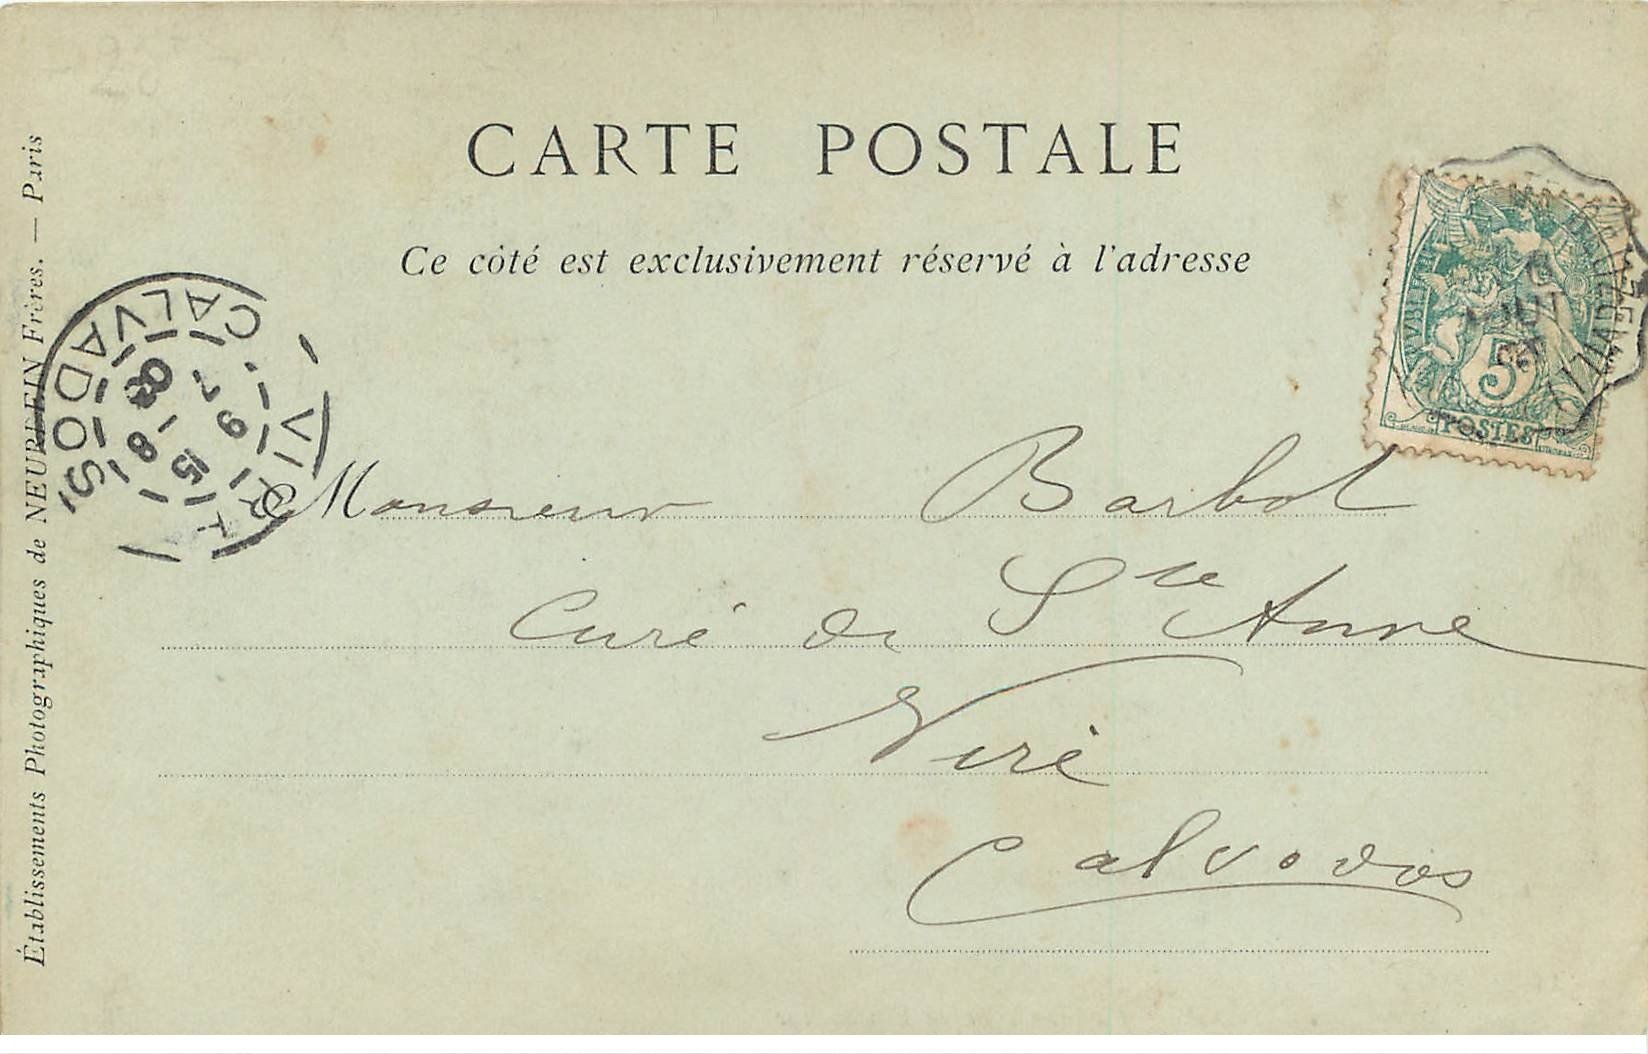 CARTE POSTALE
Ce côté est exclusivement réservé à l'adresse
Établissements Photographiques de NEURDEIN Frères. — Paris
Monsieur Barbot
Curé de Ste Anne
Viré
Calvados
VIRE
CALVADOS
15 -8
03
5
POSTES